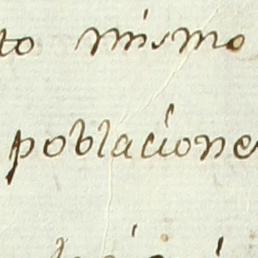 to mismo
poblacione